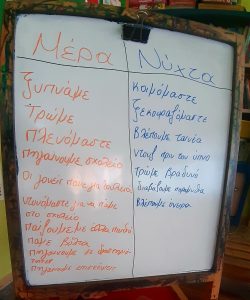 Μέρα
ξυπνάμε
Τρώμε
Πλενόμαστε
πηγαίνουμε σχολείο
Οι γονείς πάνε για δουλειά
για να πάμε
στο σχολείο
παίζουμε με άλλα παιδιά
πάμε βόλτα
πηγαίνουμε σε δραστηριό-
τητες
πηγαίνουμε επισκέψεις
Νύχτα
κοιμόμαστε
ξεκουραζόμαστε
Βλέπουμε ταινία
Ντους πριν τον ύπνο
Τρώμε βραδινό
διαβάζουμε παραμύθια
Βλέπουμε όνειρα